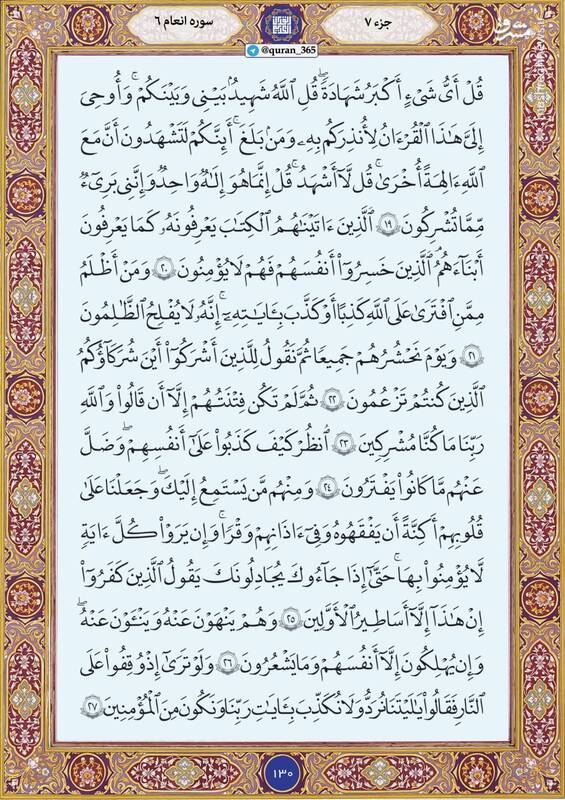 جزء ۷
سوره انعام ۶
@quran_365
مشرق
قُلْ أَىُّ شَىْءٍ أَكْبَرُ شَهَادَةً ۖ قُلِ اللَّهُ شَهِيدٌۢ بَيْنِى وَبَيْنَكُمْ ۚ وَأُوحِىَ
إِلَىَّ هَـٰذَا الْقُرْءَانُ لِأُنذِرَكُم بِهِۦ وَمَنۢ بَلَغَ ۚ أَئِنَّكُمْ لَتَشْهَدُونَ أَنَّ مَعَ
اللَّهِ ءَالِهَةً أُخْرَىٰ ۚ قُل لَّآ أَشْهَدُ ۚ قُلْ إِنَّمَا هُوَ إِلَـٰهٌ وَاحِدٌ وَإِنَّنِى بَرِىٓءٌ
مِّمَّا تُشْرِكُونَ ۱۹ الَّذِينَ ءَاتَيْنَـٰهُمُ الْكِتَـٰبَ يَعْرِفُونَهُۥ كَمَا يَعْرِفُونَ
أَبْنَآءَهُمُ ۘ الَّذِينَ خَسِرُوٓا۟ أَنفُسَهُمْ فَهُمْ لَا يُؤْمِنُونَ ۲۰ وَمَنْ أَظْلَمُ
مِمَّنِ افْتَرَىٰ عَلَى اللَّهِ كَذِبًا أَوْ كَذَّبَ بِـَٔايَـٰتِهِۦٓ ۗ إِنَّهُۥ لَا يُفْلِحُ الظَّـٰلِمُونَ
۲۱ وَيَوْمَ نَحْشُرُهُمْ جَمِيعًا ثُمَّ نَقُولُ لِلَّذِينَ أَشْرَكُوٓا۟ أَيْنَ شُرَكَآؤُكُمُ
الَّذِينَ كُنتُمْ تَزْعُمُونَ ۲۲ ثُمَّ لَمْ تَكُن فِتْنَتُهُمْ إِلَّآ أَن قَالُوا۟ وَاللَّهِ
رَبِّنَا مَا كُنَّا مُشْرِكِينَ ۲۳ انظُرْ كَيْفَ كَذَبُوا۟ عَلَىٰٓ أَنفُسِهِمْ ۚ وَضَلَّ
عَنْهُم مَّا كَانُوا۟ يَفْتَرُونَ ۲۴ وَمِنْهُم مَّن يَسْتَمِعُ إِلَيْكَ ۖ وَجَعَلْنَا عَلَىٰ
قُلُوبِهِمْ أَكِنَّةً أَن يَفْقَهُوهُ وَفِىٓ ءَاذَانِهِمْ وَقْرًا ۚ وَإِن يَرَوْا۟ كُلَّ ءَايَةٍ
لَّا يُؤْمِنُوا۟ بِهَا ۚ حَتَّىٰٓ إِذَا جَآءُوكَ يُجَـٰدِلُونَكَ يَقُولُ الَّذِينَ كَفَرُوٓا۟
إِنْ هَـٰذَآ إِلَّآ أَسَـٰطِيرُ الْأَوَّلِينَ ۲۵ وَهُمْ يَنْهَوْنَ عَنْهُ وَيَنْـَٔوْنَ عَنْهُ ۖ
وَإِن يُهْلِكُونَ إِلَّآ أَنفُسَهُمْ وَمَا يَشْعُرُونَ ۲۶ وَلَوْ تَرَىٰٓ إِذْ وُقِفُوا۟ عَلَى
النَّارِ فَقَالُوا۟ يَـٰلَيْتَنَا نُرَدُّ وَلَا نُكَذِّبَ بِـَٔايَـٰتِ رَبِّنَا وَنَكُونَ مِنَ الْمُؤْمِنِينَ ۲۷
۱۳۰